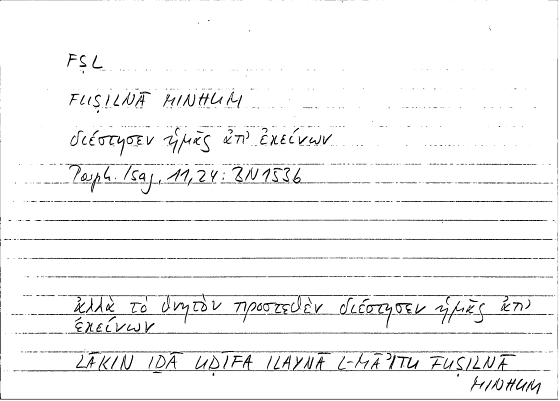 FṢL
FUṢILNĀ MINHUM
διέστησεν ἡμᾶς ἀπ' ἐκείνων
Porph. Isag. 11,24: BN1536
ἀλλὰ τὸ θνητὸν προστεθὲν διέστησεν ἡμᾶς ἀπ'
ἐκείνων
LĀKIN IḎĀ UḌIFA ILAYNĀ L-MĀʾITU FUṢILNĀ
MINHUM